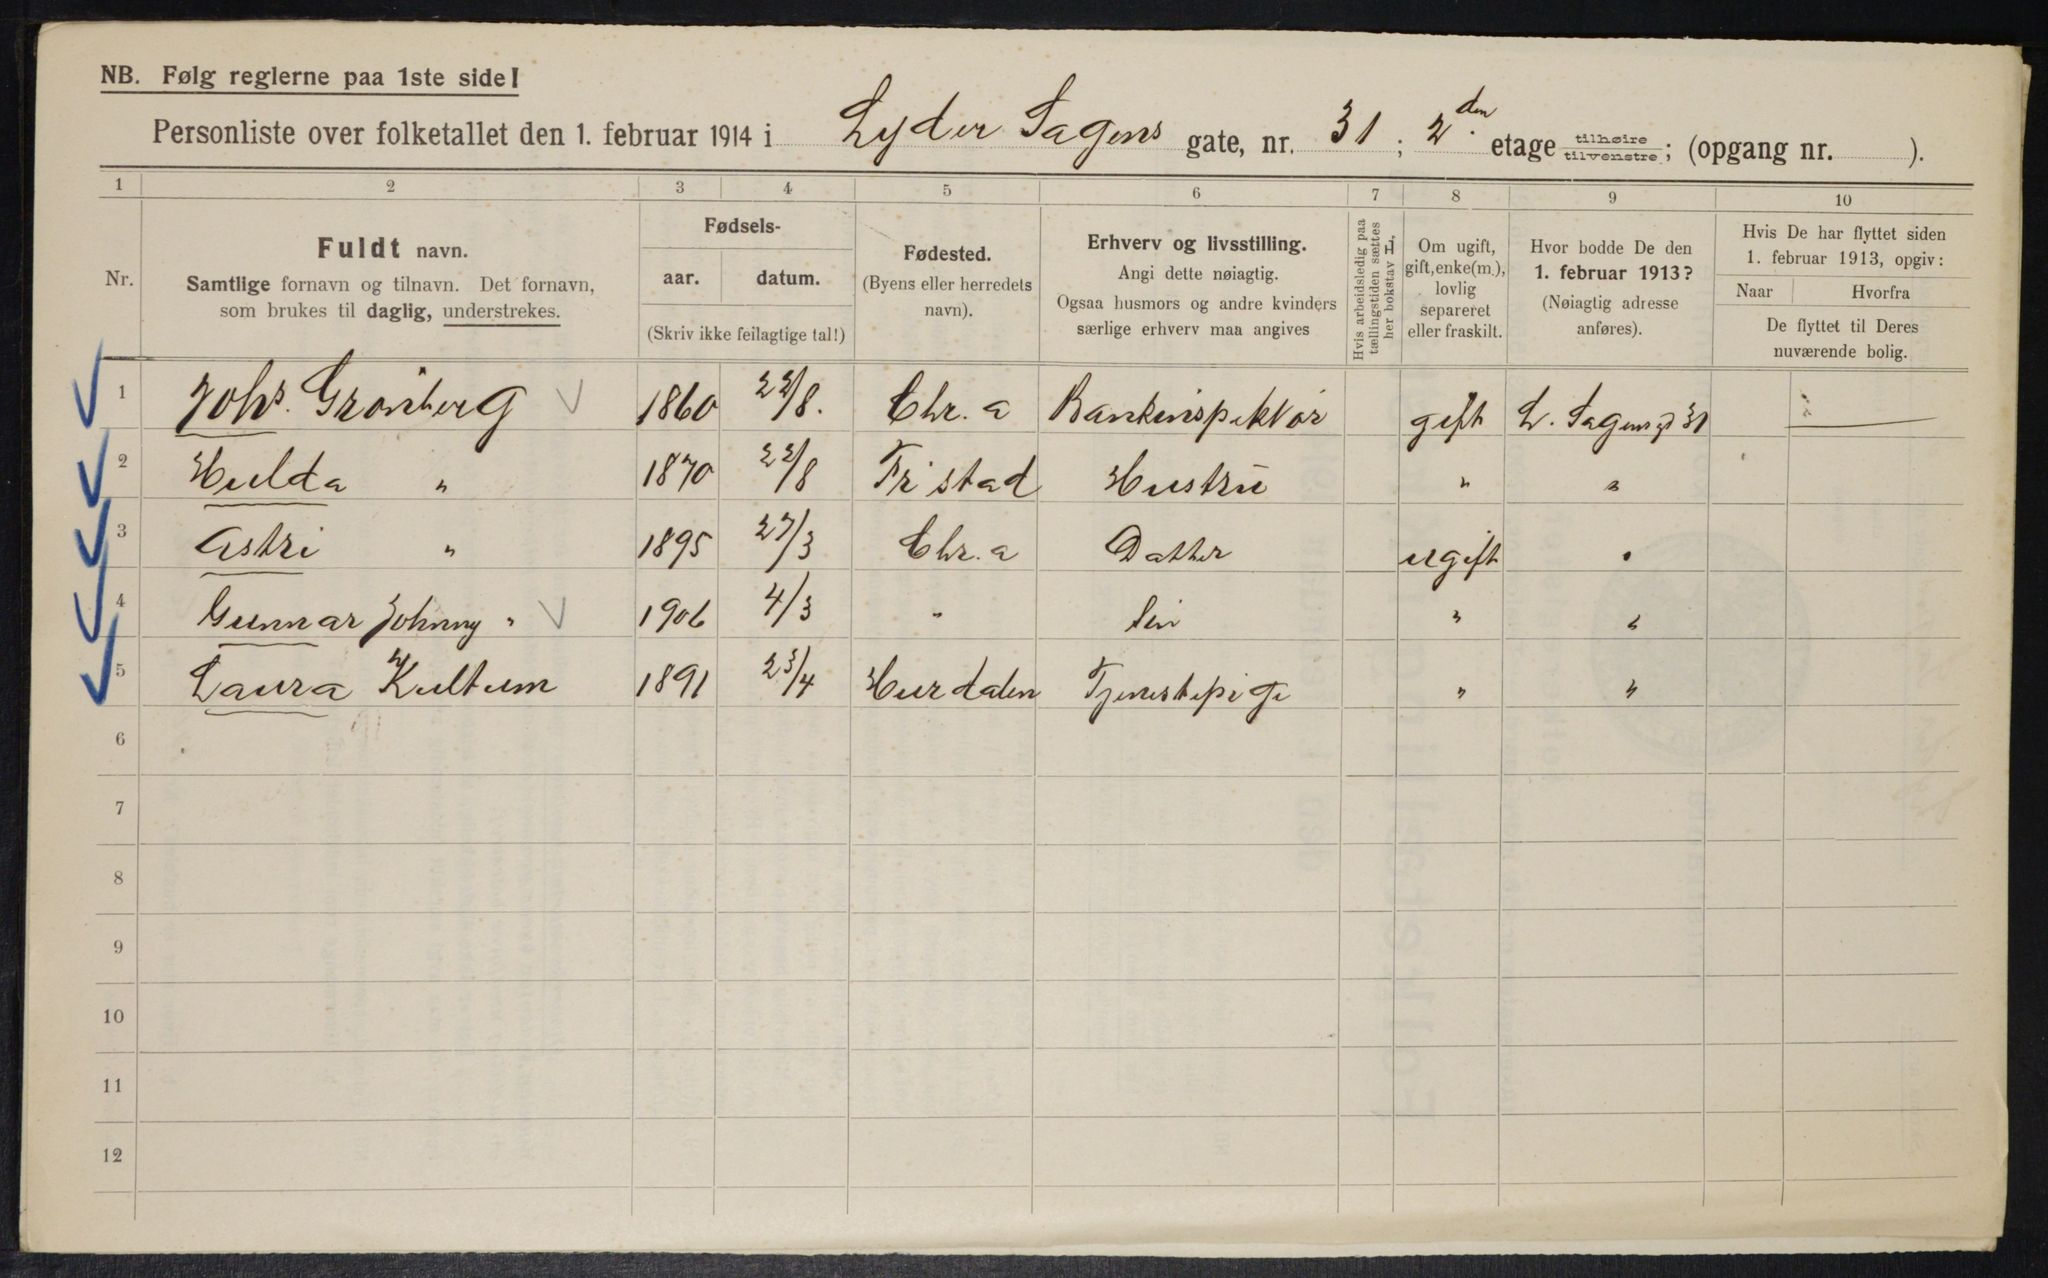 NB. Følg reglerne paa 1ste side!
Personliste over folketallet den 1. februar 1914 i Lyder Sagens gate, nr. 31; 2den etage tilhøire tilvenstre; (opgang nr. ).
1 2 3 4 5 6 7 8 9 10
Nr.
Fuldt navn.
Samtlige fornavn og tilnavn. Det fornavn,
som brukes til daglig, understrekes.
Fødsels-
aar. datum.
(Skriv ikke feilagtige tal!)
Fødested.
(Byens eller herredets
navn).
Erhverv og livsstilling.
Angi dette nøiagtig.
Ogsaa husmors og andre kvinders
særlige erhverv maa angives
Hvis arbeidsledig paa
tællingstiden sættes
her bokstav L,
Om ugift,
gift, enke(m.),
lovlig
separeret
eller fraskilt.
Hvor bodde De den
1. februar 1913?
(Nøiagtig adresse
anføres).
Hvis De har flyttet siden
1. februar 1913, opgiv:
Naar Hvorfra
De flyttet til Deres
nuværende bolig.
1 Johs. Grønberg 1860 22/8. Chr.a Bankinspektør gift L. Sagensgt 31
2 Hulda " 1870 22/8 Fr stad Hustru " "
3 Astri " 1895 27/3 Chr.a Datter ugift "
4 Gunnar Johnny " 1906 4/3 " Søn " "
5 Laura Kultum 1891 23/4 Hurdalen Tjenestepige " "
6
7
8
9
10
11
12